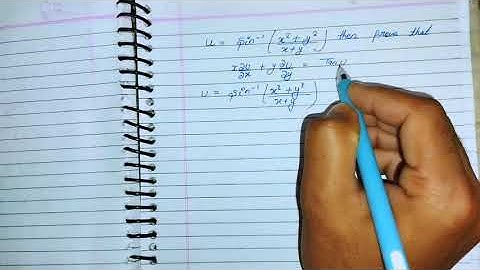 u = sin⁻¹ (x² + y² / x + y) then prove that
x ∂u/∂x + y ∂u/∂y = Tan u
u = sin⁻¹ (x² + y² / x + y)